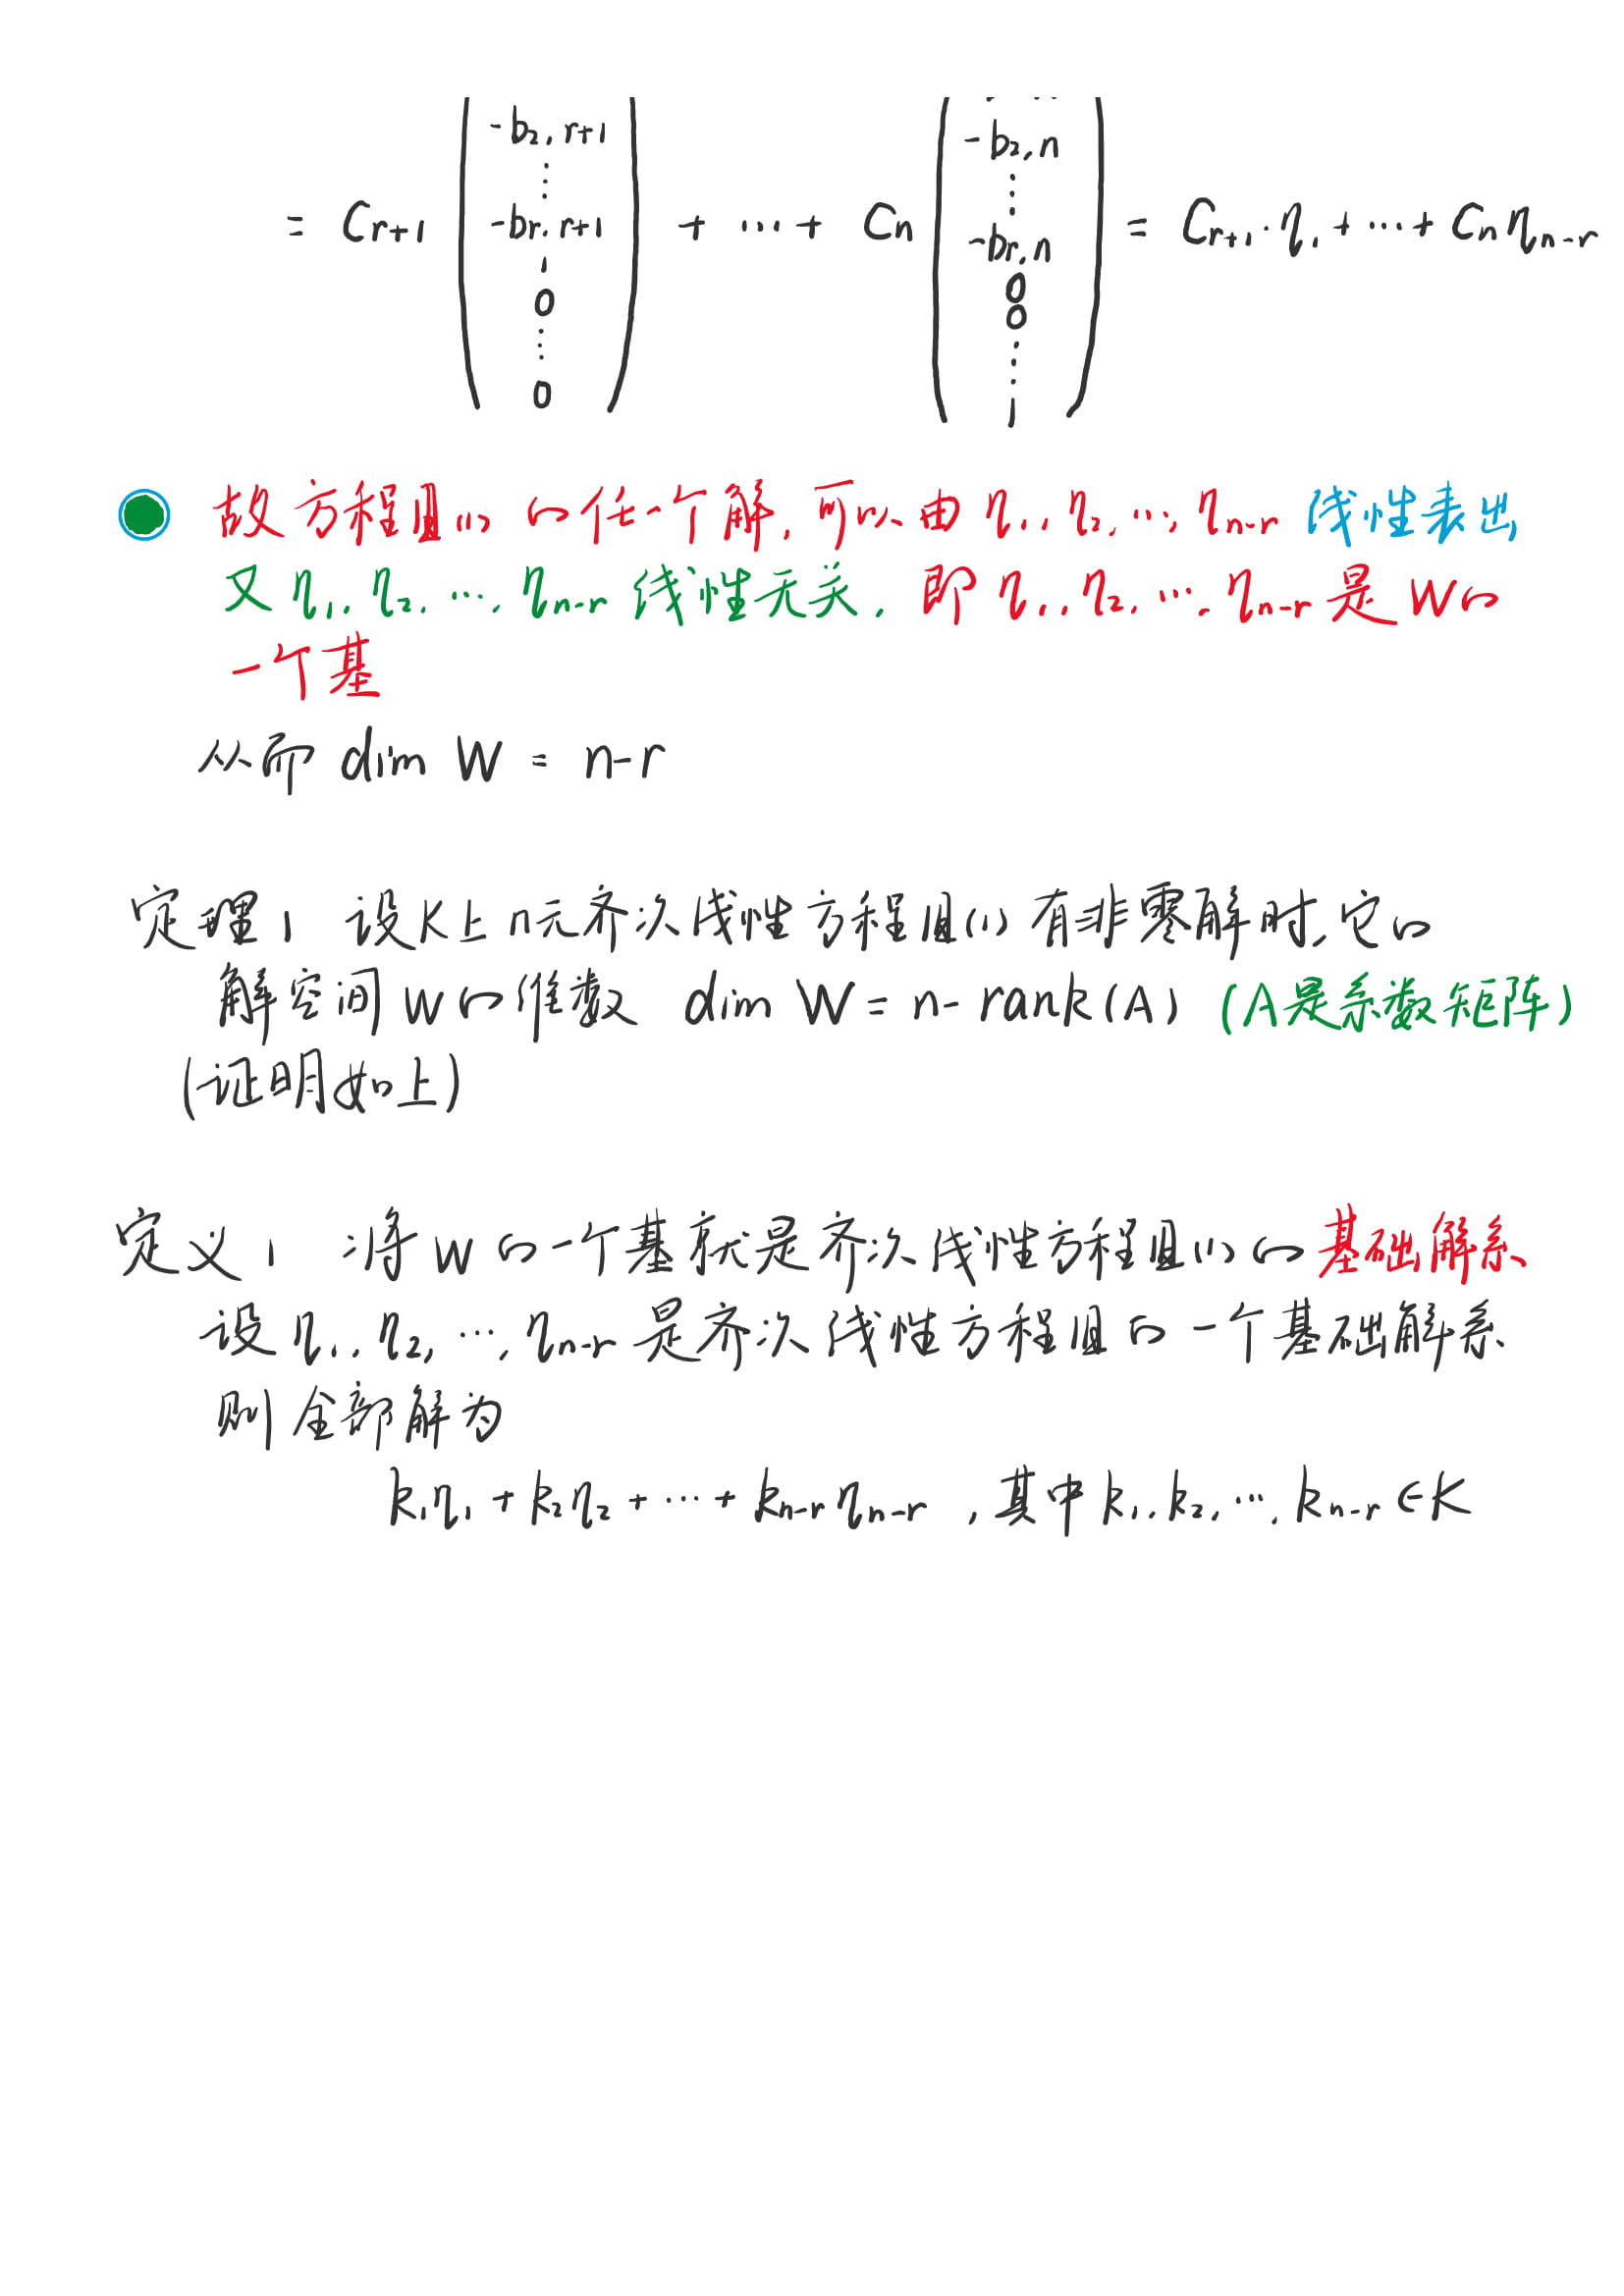 = C_{r+1} \begin{pmatrix} -b_{2,r+1} \\ \vdots \\ -b_{r,r+1} \\ 1 \\ 0 \\ \vdots \\ 0 \end{pmatrix} + … + C_n \begin{pmatrix} -b_{2,n} \\ \vdots \\ -b_{r,n} \\ 0 \\ 0 \\ \vdots \\ 1 \end{pmatrix} = C_{r+1}·η_1 + … + C_n η_{n-r}
故方程组(1)的任一个解,可以由 η_1, η_2, …, η_{n-r} 线性表出
又 η_1, η_2, …, η_{n-r} 线性无关, 即 η_1, η_2, …, η_{n-r} 是W的
一个基
从而 dim W = n-r
定理1 设K上n元齐次线性方程组(1)有非零解时,它的
解空间W的维数 dim W = n-rank(A) (A是系数矩阵)
(证明如上)
定义1 将W的一个基就是齐次线性方程组(1)的基础解系
设 η_1, η_2, …, η_{n-r} 是齐次线性方程组的一个基础解系
则全部解为
k_1η_1 + k_2η_2 + … + k_{n-r}η_{n-r} ,其中 k_1, k_2, …, k_{n-r} ∈ K